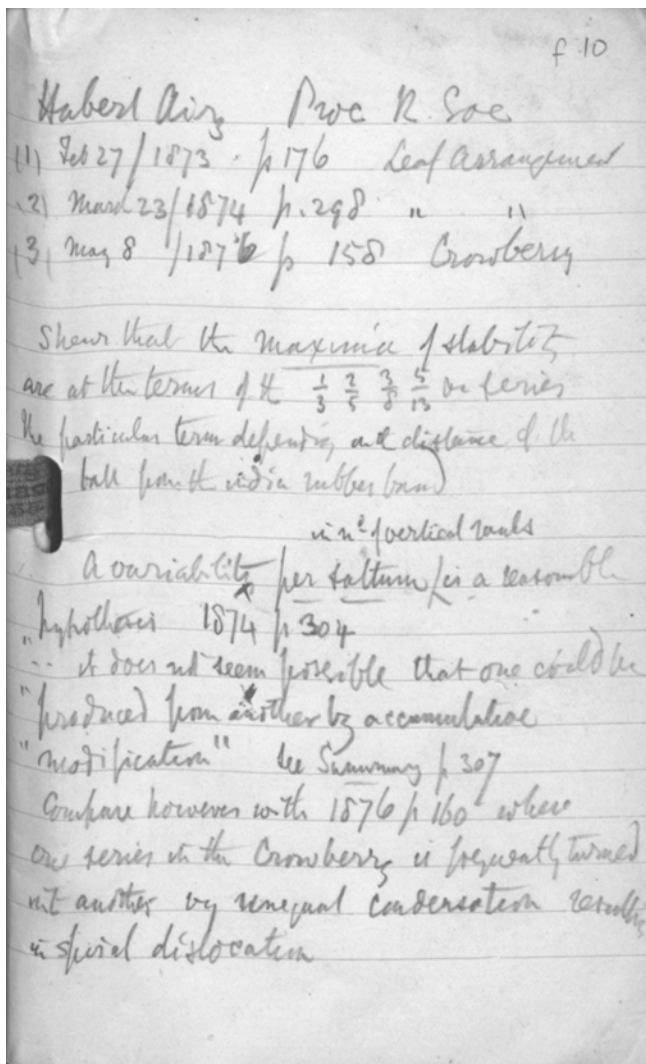 f 10
Hubert Airy Proc R. Soc
(1) Feb 27/1873 . p 176 Leaf Arrangement
(2) March 23/1874 p. 298 " "
(3) May 8 /1876 p 158 Crowberry
Shews that the maxima of stability
are at the terms of the 1/3 2/5 3/8 5/13 series
the particular term depending on the distance of the
ball from the india rubber band
in no of vertical ranks
A variability per saltum / is a reasonable
"hypothesis 1874 p 304
".. it does not seem possible that one could be
"produced from another by accumulative
"modification" See Summary p 307
Compare however with 1876 p 160 where
one series in the Crowberry is frequently turned
into another by unequal condensation resulting
in spiral dislocation